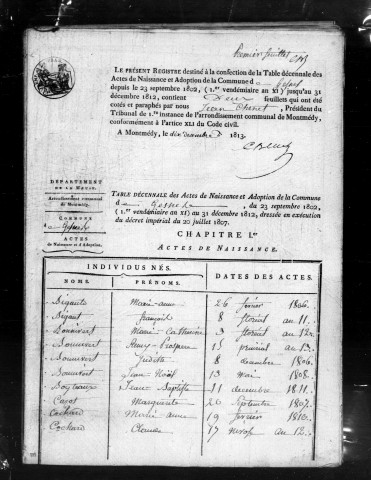 Premier feuillet
LE PRÉSENT REGISTRE destiné à la confection de la Table décennale des
Actes de Naissance et Adoption de la Commune d
depuis le 23 septembre 1802, (1.er vendémiaire an XI) jusqu'au 31
décembre 1812, contient Deux feuillets qui ont été
cotés et paraphés par nous Jean Chenet, Président du
Tribunal de 1.re instance de l'arrondissement communal de Montmédy,
conformément à l'artice XLI du Code civil.
A Montmédy, le dix 1813.
DÉPARTEMENT
DE LA MEUSE.
Arrondissement communal
de Montmédy.
COMMUNE
ACTES
de Naissance et d'Adoption.
TABLE DÉCENNALE des Actes de Naissance et Adoption de la Commune
d , du 23 septembre 1802,
(1.er vendémiaire an XI) au 31 décembre 1812, dressée en exécution
du décret impérial du 20 juillet 1807.
CHAPITRE I.er
ACTES DE NAISSANCE.
INDIVIDUS NÉS. DATES DES ACTES.
NOMS. PRÉNOMS.
Marie anne 26 février 1806.
Bigaut françois 8 floréal an 11.
Marie Catherine 3 floréal an 12.
Bonnvert Prosper 15 prairial an 13.
Bonnvert Judith 8 1806.
Bonnvert Jean Noël 13 mai 1808.
Jean Baptiste 11 decembre 1811.
Carot Marguerite 26 Septembre 1807.
Cochard Marie anne 19 fevrier 1810.
Cochard 17 nivose an 12.